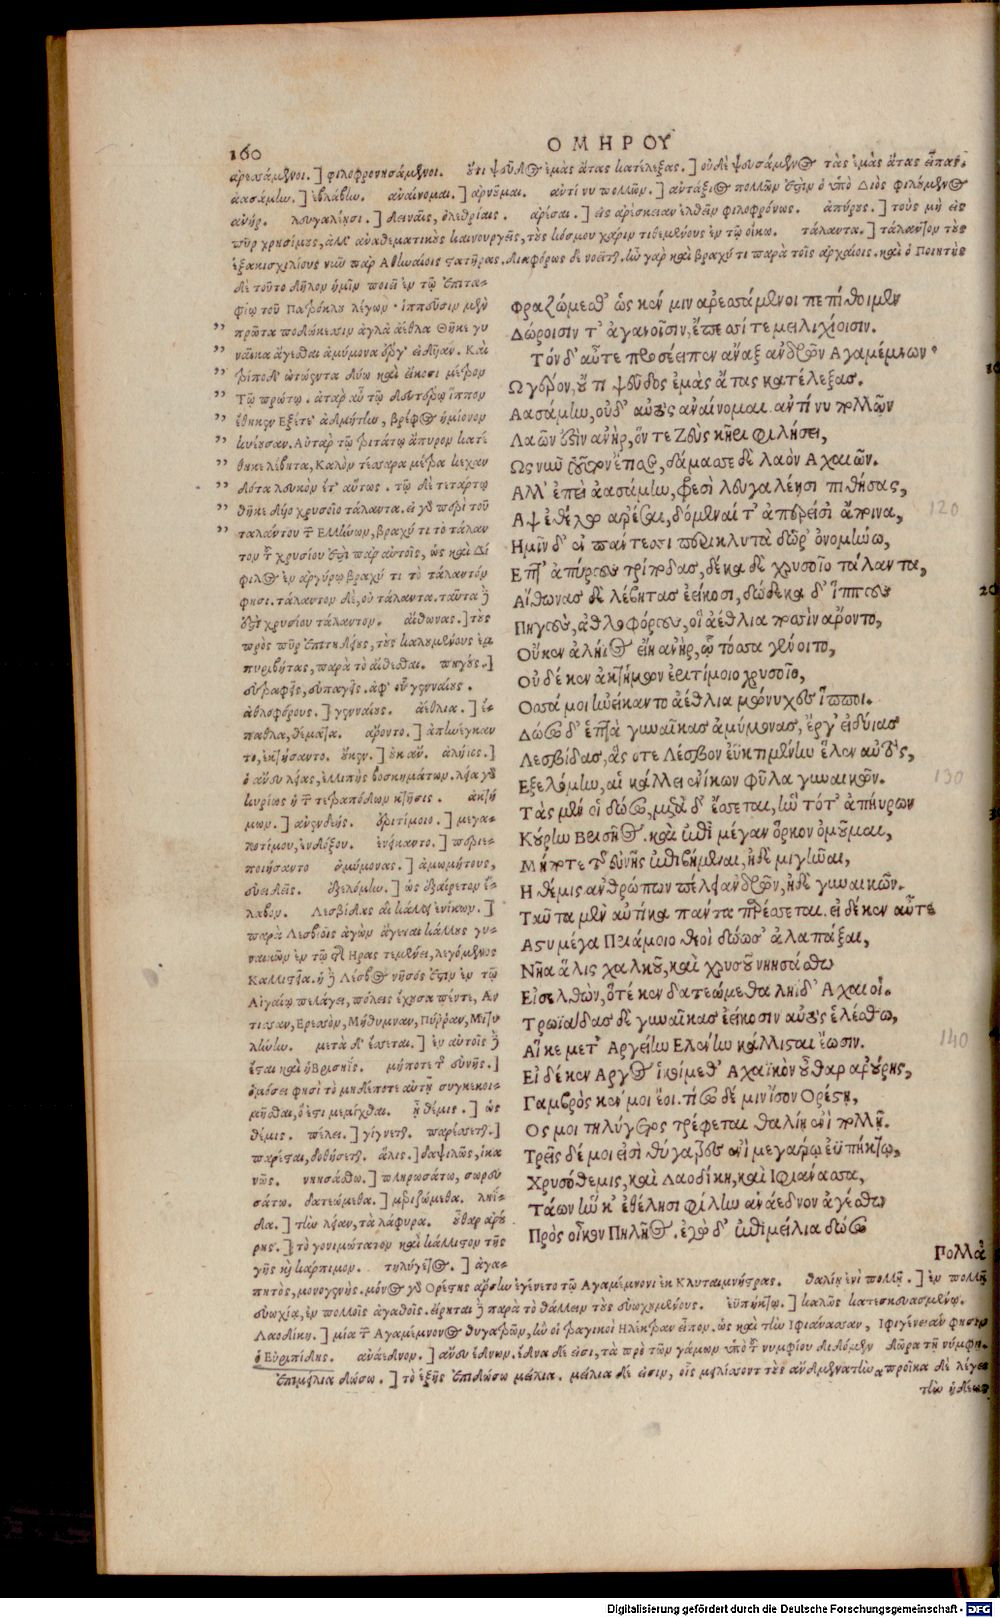 160
ΟΜΗΡΟΥ
ἀρεσάμενοι.] φιλοφρονησάμενοι. οὔτι ψεῦδος ἐμὰς ἄτας κατέλεξας.] οὐδὲ ψευσάμενος τὰς ἐμὰς ἄτας εἶπας.
ἀασάμην.] ἐβλάβην. ἀναίνομαι.] ἀρνοῦμαι. ἀντί νυ πολλῶν.] ἀντάξιος πολλῶν ἐστὶν ὁ ὑπὸ Διὸς φιλούμενος
ἀνήρ. λευγαλέῃσι.] δειναῖς, ὀλεθρίαις. ἀρέσαι.] εἰς ἀρέσκειαν ἐλθεῖν φιλοφρόνως. ἀπύρους.] τοὺς μὴ εἰς
πῦρ χρησίμους, ἀλλ' ἀναθεματικοὺς καινουργεῖς, τοὺς κόσμου χάριν τιθεμένους ἐν τῷ οἴκῳ. τάλαντα.] τάλαντον τοὺς
ἑξακισχιλίους νῦν παρ Ἀθηναίοις στατῆρας. διαφόρως δὲ νοεῖται. ἦν γὰρ καὶ βραχύ τι παρὰ τοῖς ἀρχαίοις. καὶ ὁ Ποιητὴς
δὲ τοῦτο δῆλον ἡμῖν ποιεῖ ἐν τῷ ἐπιτα-
φίῳ τοῦ Πατρόκλου λέγων· ἱππεῦσιν μὲν
πρῶτα ποδώκεσιν ἀγλὰ ἄεθλα Θῆκε γυ
ναῖκα ἄγεσθαι ἀμύμονα ἔργ' εἰδῆαν. Καὶ
τρίποδ' ὠτώεντα δύω καὶ εἴκοσι μέτρον
Τῷ πρώτῳ. ἀτὰρ αὖ τῷ δευτέρῳ ἵππον
ἔθηκεν Ἑξέτε' ἀδμήτην, βρέφος ἡμίονον
κυέουσαν. Αὐτὰρ τῷ τριτάτῳ ἄπυρον κατέ
θηκε λέβητα, Καλὸν τέσσαρα μέτρα κεχαν
δότα λευκὸν ἔτ' αὔτως. τῷ δὲ τετάρτῳ
θῆκε δύο χρυσοῖο τάλαντα. εἰ γὰρ περὶ τοῦ
ταλάντου τῶν Ἑλλήνων, βραχύ τι τὸ τάλαν
τον τοῦ χρυσίου ἐστὶ παρ αὐτοῖς, ὡς καὶ Δί
φιλος ἐν ἀργύρῳ βραχύ τι τὸ τάλαντόν
φησι. τάλαντον δὲ, οὐ τάλαντα. ταῦτα δὲ
ἐστι χρυσίου τάλαντον. αἴθωνας.] τοὺς
πρὸς πῦρ ἐπιτηδείους, τοὺς καλουμένους ἐμ
πυριβήτας, παρὰ τὸ αἴθεσθαι. πηγούς.]
εὐτραφεῖς, εὐπαγεῖς. ἀφ' οὗ γενναίους.
ἀθλοφόρους.] γενναίους. ἀέθλια.] ἔ-
παθλα, θέματα. ἄροντο.] ἀπήνεγκαν
το, ἐκτήσαντο. οὔκεν.] οὐκ ἄν. ἀλήιος.]
ὁ ἄνευ λείας, ἐλλιπὴς βοσκημάτων. λεία γὰρ
κυρίως ἡ τῶν τετραπόδων κτῆσις. ἀκτή
μων.] ἀνενδεής. ἐριτίμοιο.] μεγα-
λοτίμου, ἐνδόξου. ἐνείκαντο.] περιε-
ποιήσαντο ἀμύμονας.] ἀμωμήτους,
εὐειδεῖς. ἐξελόμην.] ὡς ἐξαίρετον ἔ-
λαβον. Λεσβίδας αἳ κάλλει ἐνίκων.]
παρὰ Λεσβίοις ἀγὼν ἄγεται κάλλους γυ-
ναικῶν ἐν τῷ τῆς Ἥρας τεμένει, λεγόμενος
Καλλιστεῖα. ἡ δὲ Λέσβος νῆσός ἐστιν ἐν τῷ
Αἰγαίῳ πελάγει, πόλεις ἔχουσα πέντε, Ἄν
τισσαν, Ἐρεσσὸν, Μήθυμναν, Πύρραν, Μιτυ
λήνην. μετὰ δ' ἔσσεται.] ἐν αὐτοῖς δὲ
ἔσται καὶ ἡ Βρισηίς. μήποτε τῆς εὐνῆς.]
ὀμόσει φησὶ τὸ μηδέποτε αὐτῇ συγκεκοι-
μῆσθαι, ὅ ἐστι μεμίχθαι. ᾗ θέμις.] ὡς
θέμις. πέλει.] γίγνεται. παρέσσεται.]
παρέσται, δοθήσεται. ἅλις.] δαψιλῶς, ἱκα
νῶς. νηησάσθω.] πληρωσάτω, σωρευ
σάτω. δατεώμεθα.] μεριζώμεθα. ληΐ-
δα.] τὴν λείαν, τὰ λάφυρα. οὖθαρ ἀρού
ρης.] τὸ γονιμώτατον καὶ κάλλιστον τῆς
γῆς καὶ κάρπιμον. τηλύγετος.] ἀγα-
Φραζώμεσθ' ὥς κέν μιν ἀρεσσάμενοι πεπίθοιμεν
Δώροισίν τ' ἀγανοῖσιν, ἔπεσσί τε μειλιχίοισιν.
Τὸν δ' αὖτε προσέειπεν ἄναξ ἀνδρῶν Ἀγαμέμνων·
Ὦ γέρον, οὔ τι ψεῦδος ἐμὰς ἄτας κατέλεξας.
Ἀασάμην, οὐδ' αὐτὸς ἀναίνομαι. ἀντί νυ πολλῶν
Λαῶν ἐστὶν ἀνὴρ, ὅν τε Ζεὺς κῆρι φιλήσει,
Ὡς νῦν τοῦτον ἔτισε, δάμασσε δὲ λαὸν Ἀχαιῶν.
Ἀλλ' ἐπεὶ ἀασάμην, φρεσὶ λευγαλέῃσι πιθήσας,
Ἂψ ἐθέλω ἀρέσαι, δόμεναί τ' ἀπερείσι' ἄποινα,
Ἡμῖν δ' ἐν πάντεσσι περικλυτὰ δῶρ' ὀνομήνω,
Ἕπτ' ἀπύρους τρίποδας, δέκα δὲ χρυσοῖο τάλαντα,
Αἴθωνας δὲ λέβητας ἐείκοσι, δώδεκα δ' ἵππους
Πηγοὺς, ἀθλοφόρους, οἳ ἀέθλια ποσσὶν ἄροντο,
Οὔκεν ἀλήιος εἴη ἀνὴρ, ᾧ τόσσα γένοιτο,
Οὐδέ κεν ἀκτήμων ἐριτίμοιο χρυσοῖο,
Ὅσσά μοι ἠνείκαντο ἀέθλια μώνυχες ἵπποι.
Δώσω δ' ἑπτὰ γυναῖκας ἀμύμονας, ἔργ' εἰδυίας
Λεσβίδας, ἃς ὅτε Λέσβον ἐϋκτιμένην ἕλεν αὐτὸς,
Ἐξελόμην, αἳ κάλλει ἐνίκων φῦλα γυναικῶν.
Τὰς μέν οἱ δώσω, μετὰ δ' ἔσσεται, ἣν τότ' ἀπηύρων
Κούρην Βρισῆος. καὶ ἐπὶ μέγαν ὅρκον ὀμοῦμαι,
Μήποτε τῆς εὐνῆς ἐπιβήμεναι, ἠδὲ μιγῆναι,
Ἣ θέμις ἀνθρώπων πέλει ἀνδρῶν, ἠδὲ γυναικῶν.
Ταῦτα μὲν αὐτίκα πάντα παρέσσεται. εἰ δέ κεν αὖτε
Ἄστυ μέγα Πριάμοιο θεοὶ δώωσ' ἀλαπάξαι,
Νῆα ἅλις χαλκοῦ, καὶ χρυσοῦ νηησάσθω
Εἰσελθὼν, ὅτέ κεν δατεώμεθα ληίδ' Ἀχαιοί.
Τρωϊάδας δὲ γυναῖκας ἐείκοσιν αὐτὸς ἑλέσθω,
Αἵ κε μετ' Ἀργείην Ἑλένην κάλλισται ἔωσιν.
Εἰ δέ κεν Ἄργος ἱκοίμεθ' Ἀχαϊκὸν οὖθαρ ἀρούρης,
Γαμβρὸς κέν μοι ἔοι. τίσω δέ μιν ἶσον Ὀρέστῃ,
Ὅς μοι τηλύγετος τρέφεται θαλίῃ ἐνὶ πολλῇ.
Τρεῖς δέ μοι εἰσὶ θύγατρες ἐνὶ μεγάρῳ ἐϋπήκτῳ,
Χρυσόθεμις, καὶ Λαοδίκη, καὶ Ἰφιάνασσα,
Τάων ἥν κ' ἐθέλησι φίλην ἀνάεδνον ἀγέσθω
Πρὸς οἶκον Πηλῆος. ἐγὼ δ' ἐπὶ μείλια δώσω
Πολλὰ
120
130
140
πητὸς, μονογενής. μόνος γὰρ Ὀρέστης ἄρσην ἐγένετο τῷ Ἀγαμέμνονι ἐκ Κλυταιμνήστρας. θαλίῃ ἐνὶ πολλῇ.] ἐν πολλῇ
εὐωχίᾳ, ἐν πολλοῖς ἀγαθοῖς. εἴρηται δὲ παρὰ τὸ θάλλειν τοὺς εὐωχουμένους. ἐϋπήκτῳ.] καλῶς κατεσκευασμένῳ.
Λαοδίκη.] μία τῶν Ἀγαμέμνονος θυγατρῶν, ἣν οἱ τραγικοὶ Ἠλέκτραν εἶπον. ὡς καὶ τὴν Ἰφιάνασσαν, Ἰφιγένειαν φησιν
ὁ Εὐριπίδης. ἀνάεδνον.] ἄνευ ἕδνων. ἕδνα δέ εἰσι, τὰ πρὸ τῶν γάμων ὑπὸ τοῦ νυμφίου διδόμενα δῶρα τῇ νύμφῃ.
ἐπιμείλια δώσω.] τὸ ἑξῆς ἐπιδώσω μείλια. μείλια δέ εἰσιν, οἷς μειλίσσοντ τοὺς ἄνδρας προῖκα δὲ λέγει
τὴν ἡδέως
Digitalisierung gefördert durch die Deutsche Forschungsgemeinschaft - DFG